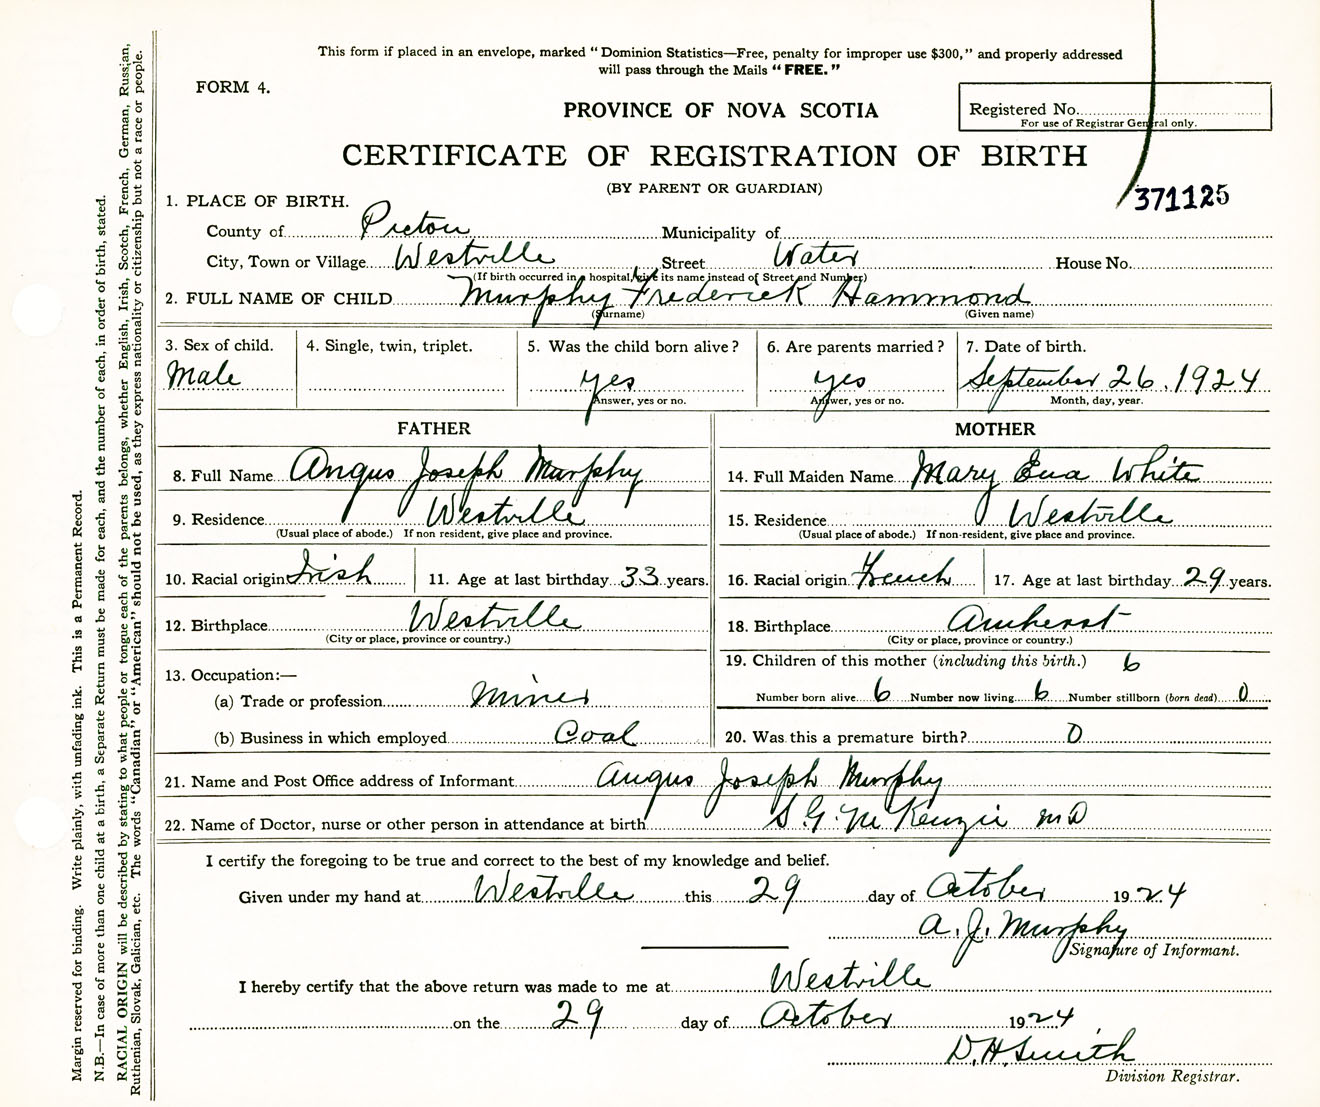 This form if placed in an envelope, marked “Dominion Statistics—Free, penalty for improper use $300,” and properly addressed
will pass through the Mails “FREE.”
FORM 4.
PROVINCE OF NOVA SCOTIA
Registered No.
For use of Registrar General only.
CERTIFICATE OF REGISTRATION OF BIRTH
(BY PARENT OR GUARDIAN)
371125
1. PLACE OF BIRTH.
County of Pictou Municipality of
City, Town or Village Westville Street Water House No.
(If birth occurred in a hospital, give its name instead of Street and Number)
2. FULL NAME OF CHILD Murphy Frederick Hammond
(Surname) (Given name)
3. Sex of child. 4. Single, twin, triplet. 5. Was the child born alive? 6. Are parents married? 7. Date of birth.
Male yes yes September 26, 1924
Answer, yes or no. Answer, yes or no. Month, day, year.
FATHER MOTHER
8. Full Name Angus Joseph Murphy 14. Full Maiden Name Mary Eva White
9. Residence Westville 15. Residence Westville
(Usual place of abode.) If non resident, give place and province. (Usual place of abode.) If non-resident, give place and province.
10. Racial origin Irish 11. Age at last birthday 33 years. 16. Racial origin French 17. Age at last birthday 29 years.
12. Birthplace Westville 18. Birthplace Amherst
(City or place, province or country.) (City or place, province or country.)
13. Occupation:— 19. Children of this mother (including this birth.) 6
(a) Trade or profession Miner Number born alive 6 Number now living 6 Number stillborn (born dead) 0
(b) Business in which employed Coal 20. Was this a premature birth? 0
21. Name and Post Office address of Informant Angus Joseph Murphy
22. Name of Doctor, nurse or other person in attendance at birth S. G. McKenzie MD
I certify the foregoing to be true and correct to the best of my knowledge and belief.
Given under my hand at Westville this 29 day of October 1924
A. J. Murphy
Signature of Informant.
I hereby certify that the above return was made to me at Westville
on the 29 day of October 1924
D. H. Smith
Division Registrar.
Margin reserved for binding. Write plainly, with unfading ink. This is a Permanent Record.
N.B.—In case of more than one child at a birth, a Separate Return must be made for each, and the number of each, in order of birth, stated.
RACIAL ORIGIN will be described by stating to what people or tongue each of the parents belongs, whether English, Irish, Scotch, French, German, Russian,
Ruthenian, Slovak, Galician, etc. The words “Canadian” or “American” should not be used, as they express nationality or citizenship but not a race or people.